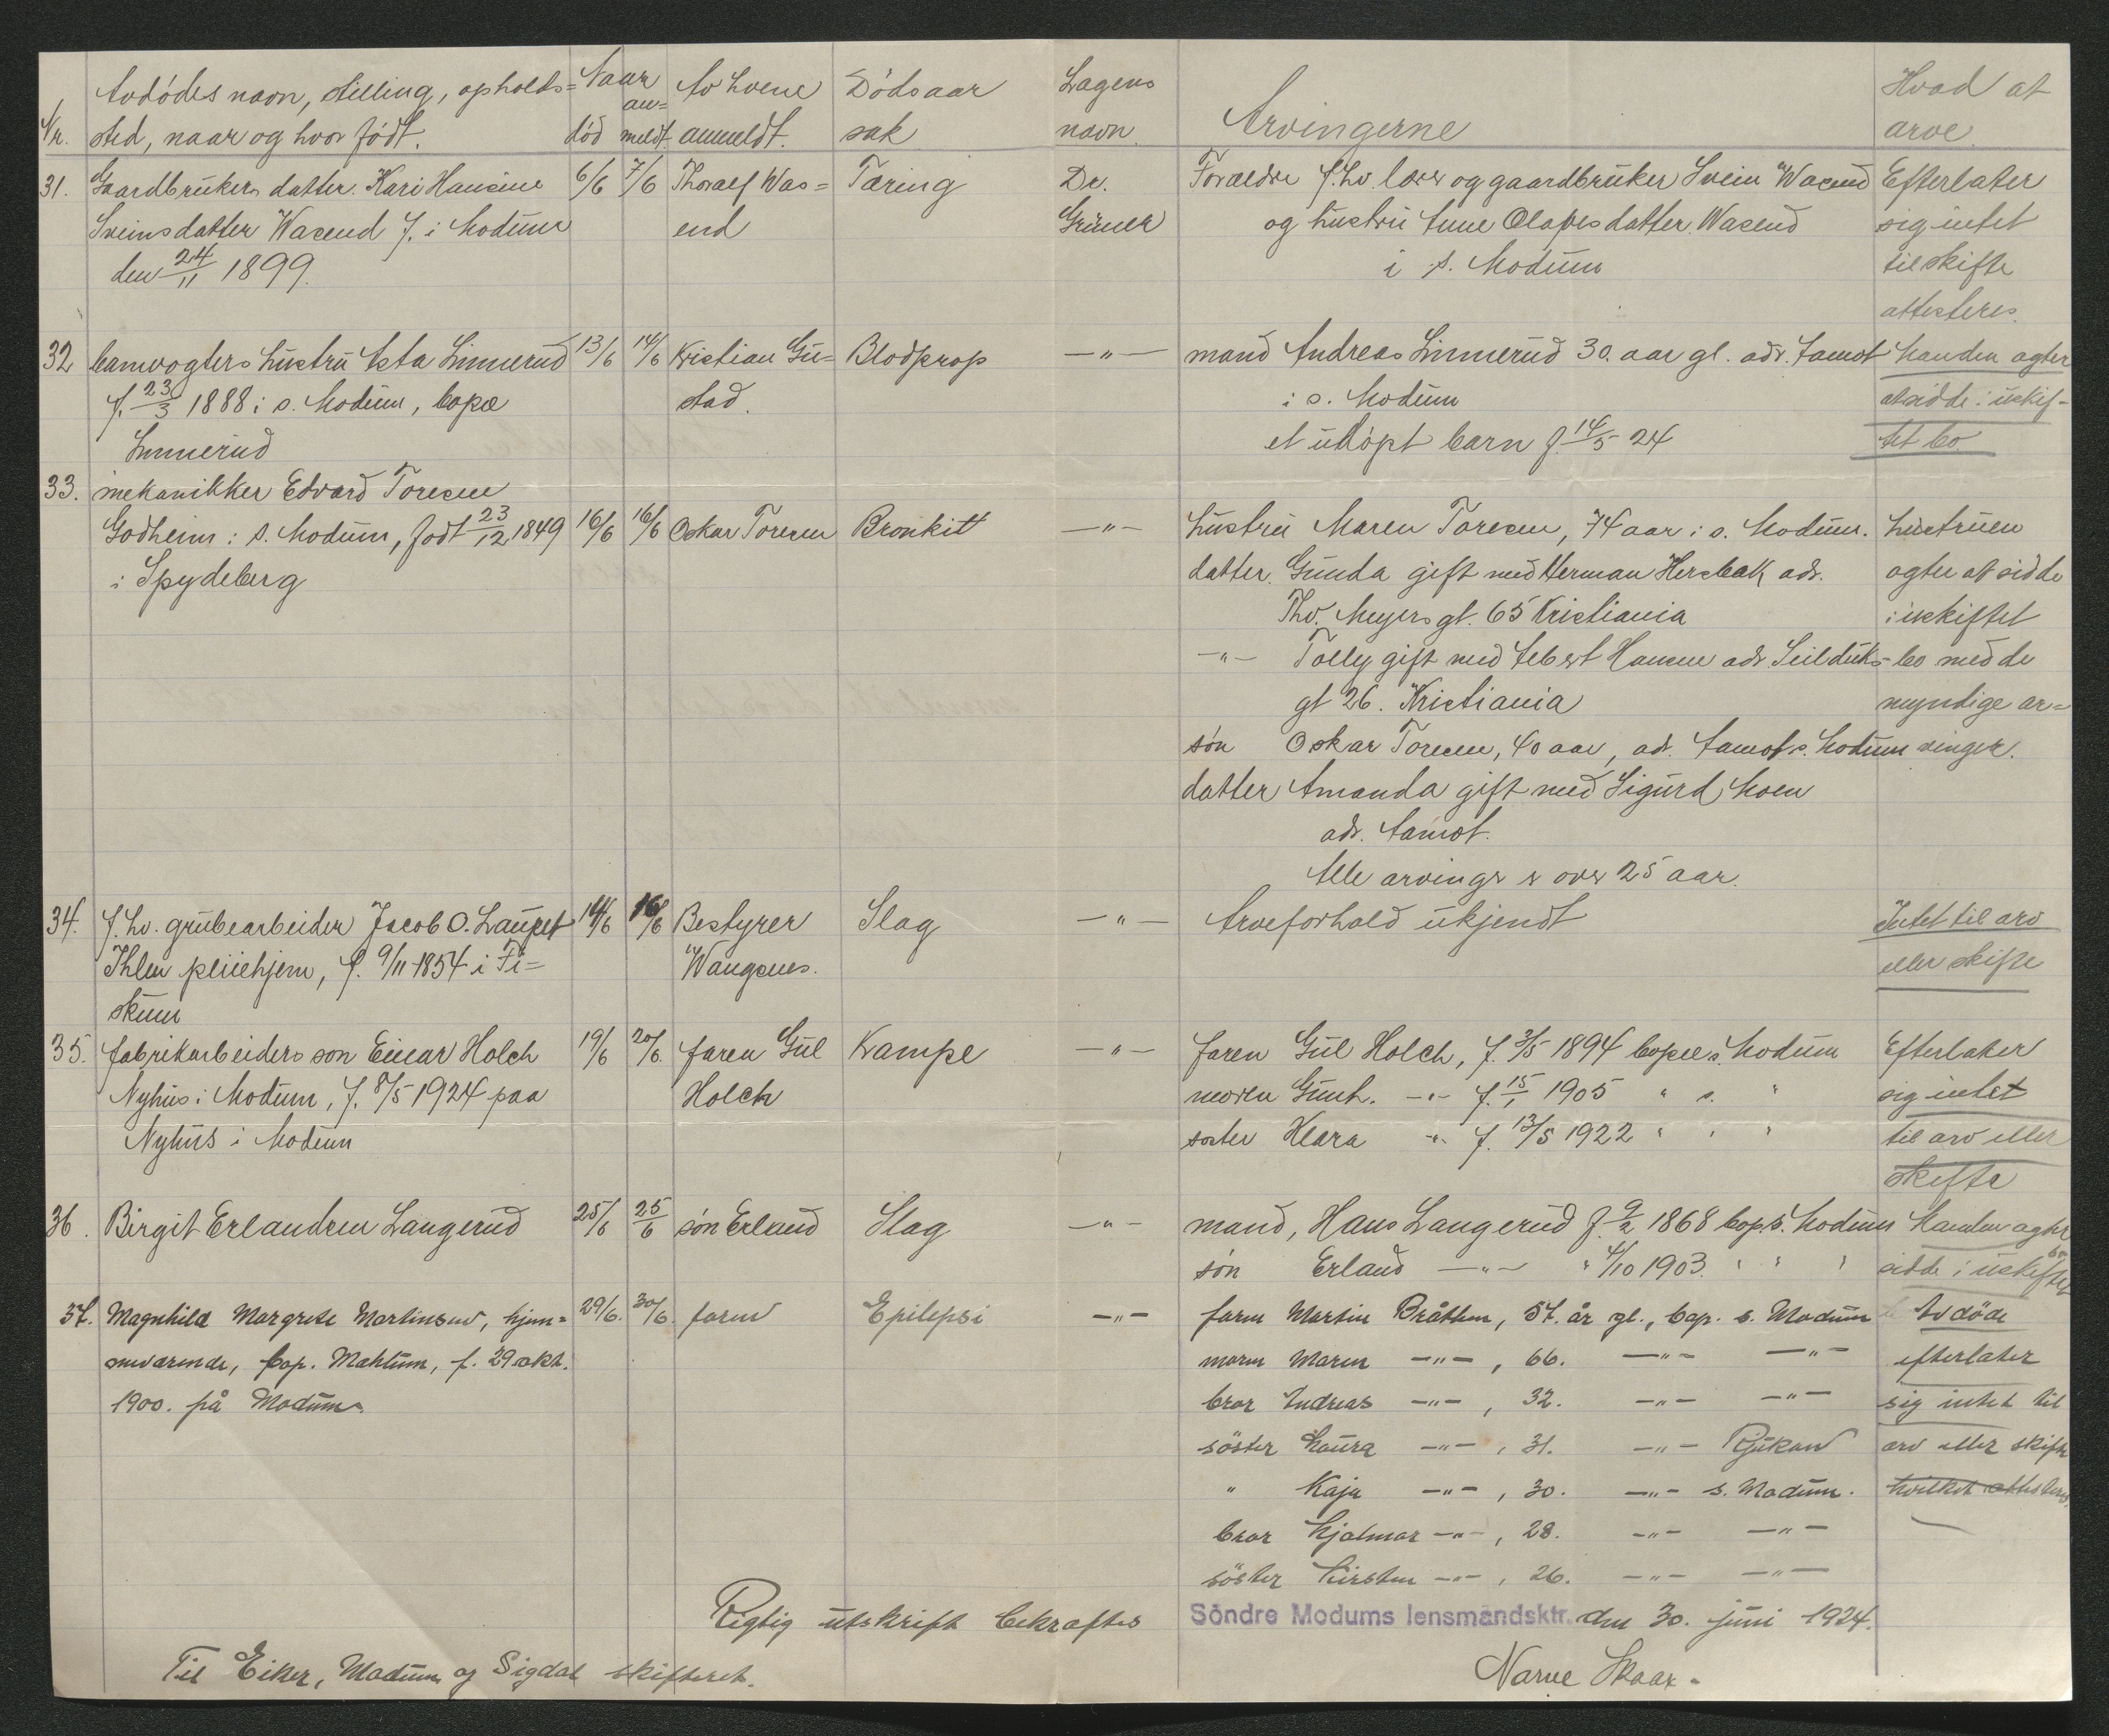 Avdødes navn, stilling, opholds= Naar Av hvem Dødsaar Lægens Hvad at
Nr. sted, naar og hvor født. død an= meldt anmeldt. sak navn Arvingerne arve
31. Gaardbrukers datter. Kari Hansine 6/6 7/6 Thoralf Was= Tæring Dr. Forældre f.hv. lærer og gaardbruker Svein Wasend Efterlater
Sveinsdatter Wasend f. i Modum end Grüner og hustru Anne Olavesdatter Wasend sig intet
den 24/11 1899. i s. Modum til skifte
attesteres.
32 banevogters hustru Asta Linnerud 13/6 14/6 Kristian Gu= Blodprop —"— mand Andreas Linnerud 30. aar gl. adr. Aamot Manden agter
f. 23/3 1888 i s. Modum, bopæ stad. i s. Modum at sidde i uskif-
Linnerud et udøpt barn f. 14/5-24 tet bo
33. mekanikker Edvard Toresen
Godheim i s. Modum, født 23/12 1849 16/6 16/6 Oskar Toresen Bronkitt —"— hustru Maren Toresen, 74 aar i s. Modum. hustruen
i Spydeberg datter. Gunda gift med Herman Hersbak adr. agter at sidde
Thv. Meyers gt. 65 Kristiania i uskiftet
—"— Tolly gift med Albert Hansen adr. Seilduks- bo med de
gt 26. Kristiania myndige ar=
søn Oskar Toresen, 40 aar, adr. Aamot s. Modum vinger.
datter Amanda gift med Sigurd Moen
adr. Aamot.
Alle arvinger er over 25 aar.
34. f.hv. grubearbeider Jacob O. Laupet 14/6 16/6 Bestyrer Slag —"— Arveforhold ukjendt Intet til arv
Ihlen pleiehjem, f. 9/11-1854 i Fi= Wangsnes. eller skifte
skum
35. fabrikarbeiders søn Einar Holch 19/6 20/6. faren Gul Krampe —"— faren Gul Holch, f. 3/5 1894 bopæl s. Modum Efterlater
Nyhus i Modum, f. 8/5 1924 paa Holch moren Gunh. —"— f. 15/1 1905 " s. " sig intet
Nyhus i Modum søster Klara —"— f. 13/5 1922 " " " til arv eller
skifte
36. Birgit Erlandsen Langerud 25/6 25/6 søn Erland Slag —"— mand, Hans Langerud f. 9/2 1868 bop. s. Modum Manden agter
søn Erland —"— " 4/10 1903. " " " sidde i uskiftet bo
37. Magnhild Margrete Martinsen, hjem= 29/6. 30/6. faren Epilepsi —"— faren Martin Bråthen, 57. år gl., bop. s. Modum Avdöde
meværende, bop. Modum, f. 29 okt. moren Maren —"—, 66. —"— —"— efterlater
1900. på Modum. bror Andreas —"—, 32. —"— —"— sig intet til
söster Laura —"—, 31. —"— Rjukan arv eller skifte
" Kaja —"—, 30. —"— s. Modum. hvilket attesteres.
bror Hjalmar —"—, 28. —"— —"—
söster Kirsten —"—, 26. —"— —"—
Rigtig utskrift bekræftes Söndre Modums lensmandsktr. den 30. juni 1924.
Til Eiker, Modum og Sigdal skifteret. Narve Skaar.